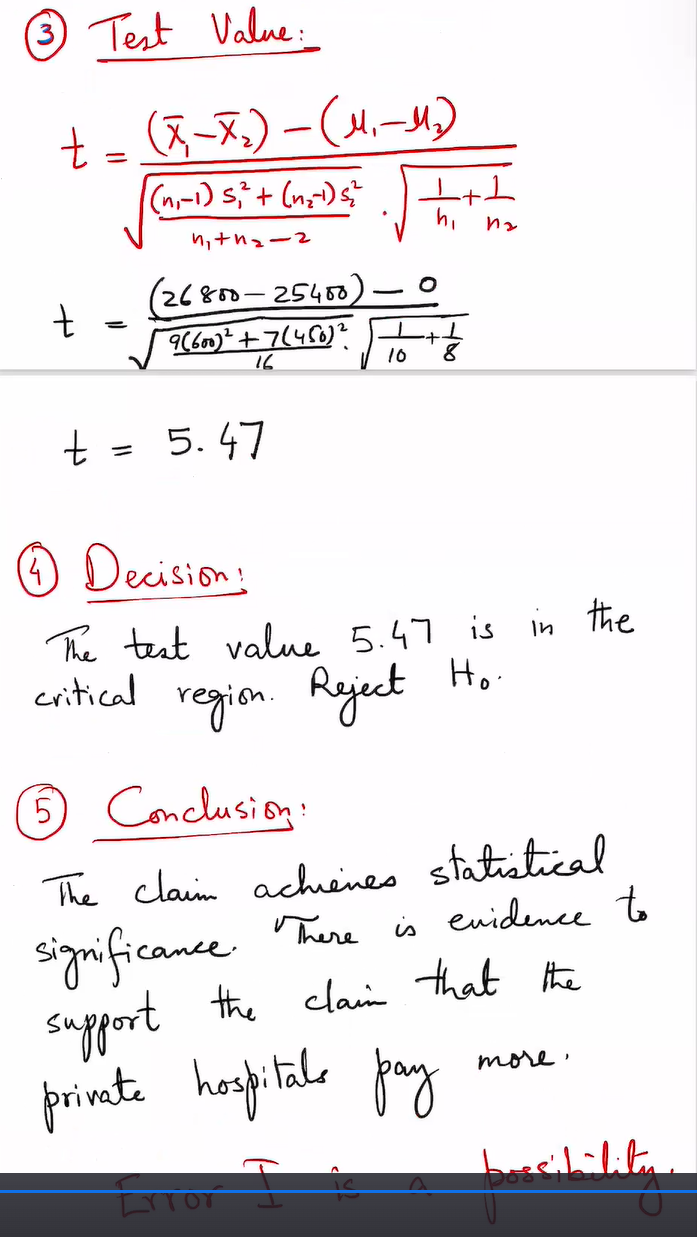 ③ Test Value:
t = (X̄₁–X̄₂) – (μ₁–μ₂) / √((n₁–1) s₁² + (n₂–1) s₂² / n₁+n₂–2) · √(1/n₁ + 1/n₂)
t = (26800 – 25400) – 0 / √(9(600)² + 7(450)² / 16) · √(1/10 + 1/8)
t = 5.47
④ Decision:
The test value 5.47 is in the
critical region. Reject H₀.
⑤ Conclusion:
The claim achieves statistical
significance. There is evidence to
support the claim that the
private hospitals pay more.
Error I is a possibility.